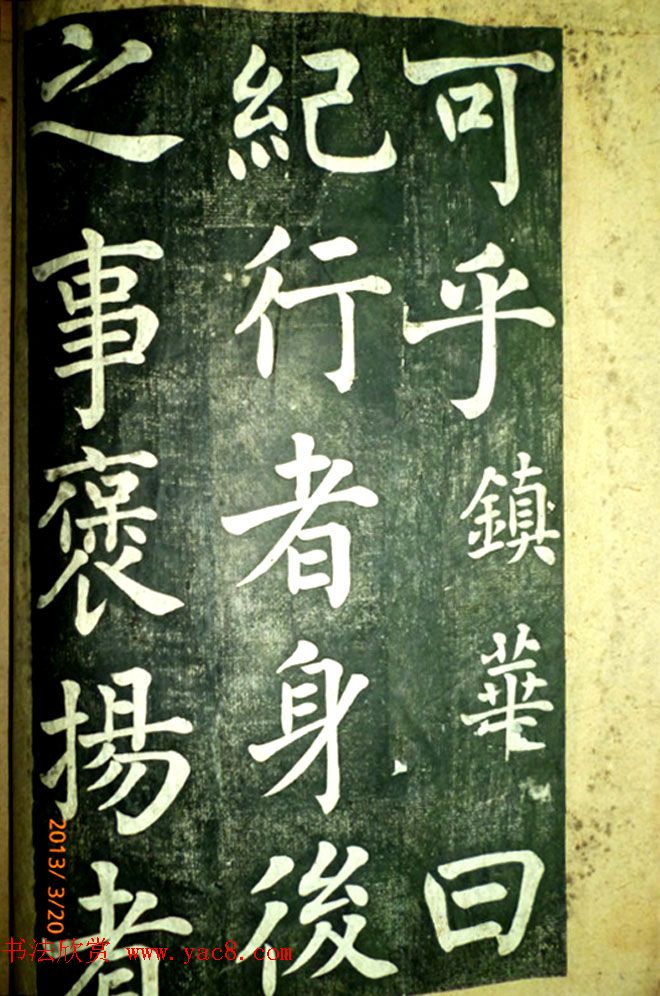 可乎鎮華曰
紀行者身後
之事褒揚者
2013/ 3/20
书法欣赏 www.yac8.com